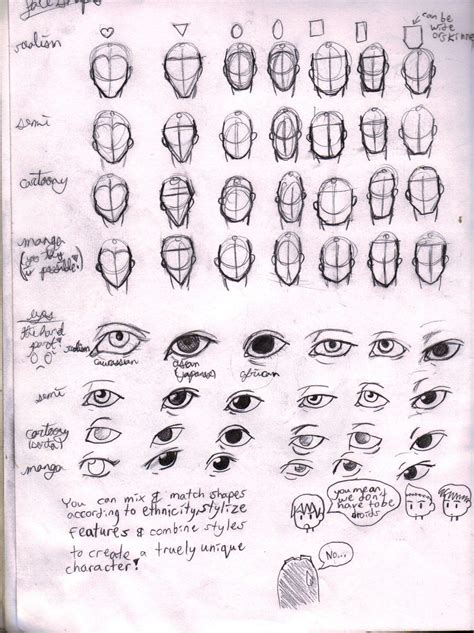 face shapes
can be
wide
or skinny
realism
semi
cartoony
manga
(yes they
is possible!
eyes
the hard
part!
realism
caucasian
asian
(japanese)
african
semi
cartoony
(sorta)
manga
You can mix & match shapes
according to ethnicity, stylize
features & combine styles
to create a truely unique
character!
you mean
we don't
have to be
droids
No...